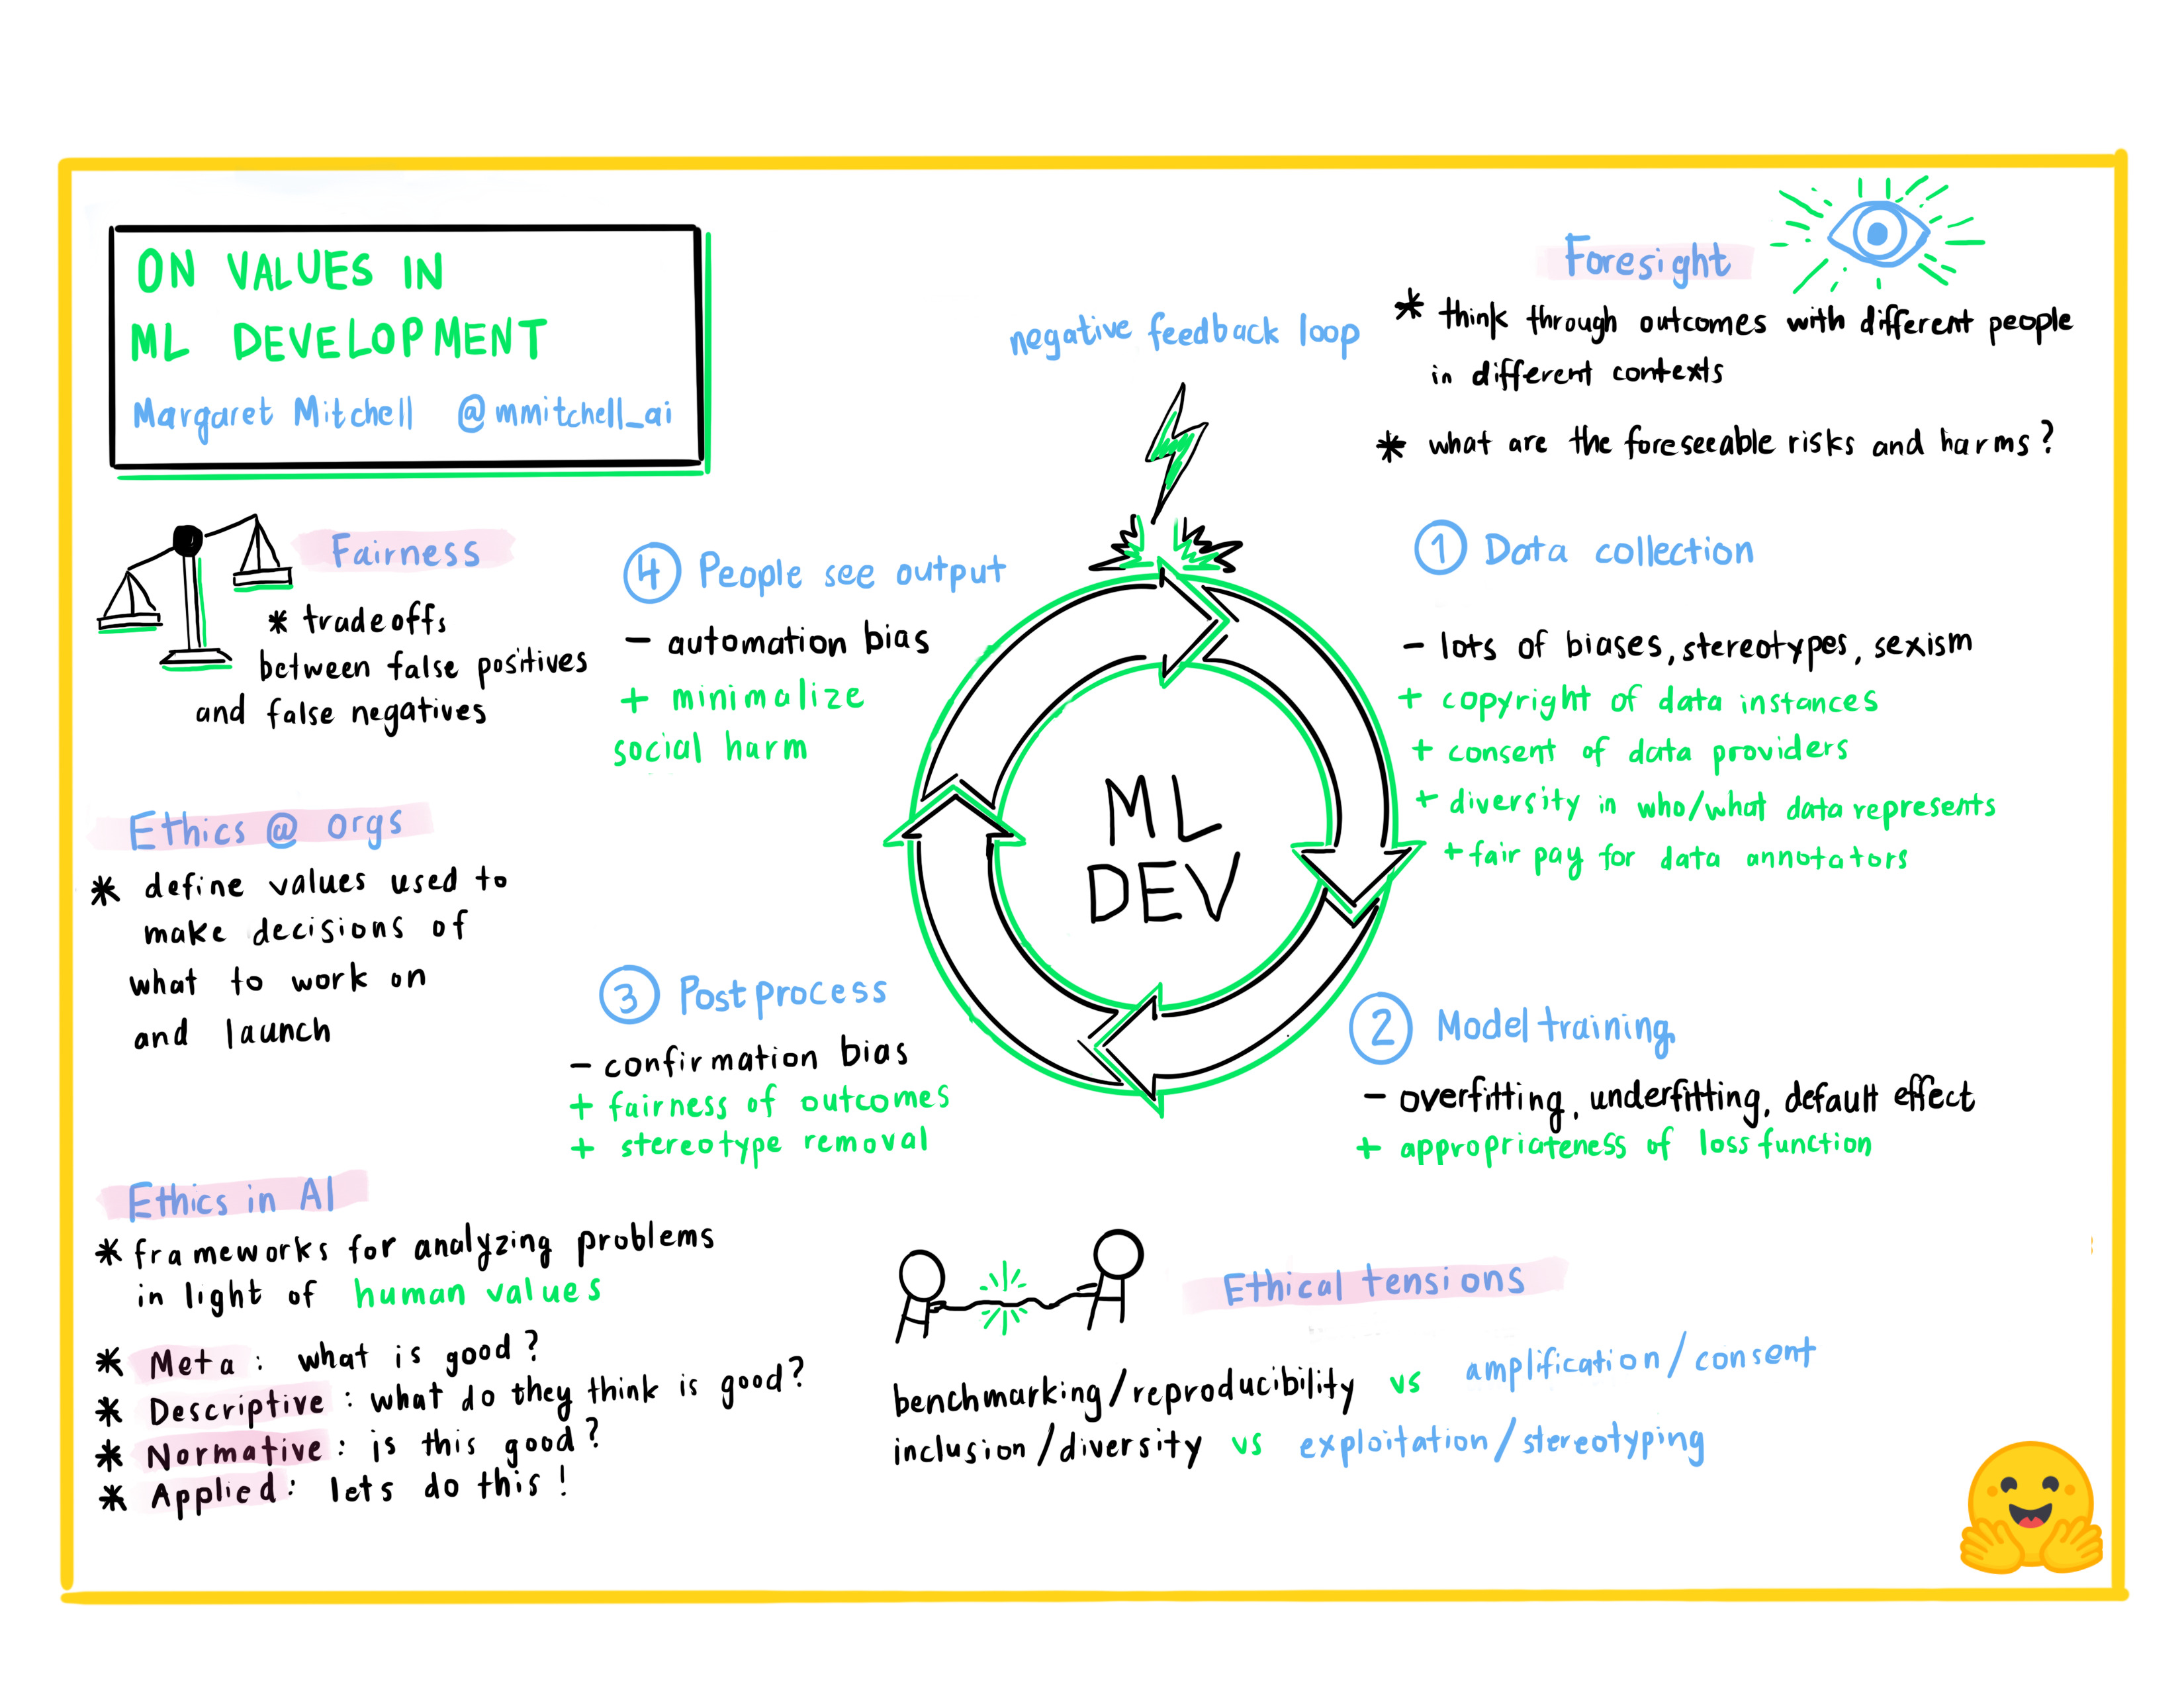 ON VALUES IN
ML DEVELOPMENT
Margaret Mitchell @mmitchell_ai
Fairness
* tradeoffs
between false positives
and false negatives
Ethics @ orgs
* define values used to
make decisions of
what to work on
and launch
Ethics in AI
* frameworks for analyzing problems
in light of human values
* Meta: what is good?
* Descriptive: what do they think is good?
* Normative: is this good?
* Applied: lets do this!
negative feedback loop
ML
DEV
Foresight
* think through outcomes with different people
in different contexts
* what are the foreseeable risks and harms?
1 Data collection
- lots of biases, stereotypes, sexism
+ copyright of data instances
+ consent of data providers
+ diversity in who/what data represents
+ fair pay for data annotators
2 Model training
- overfitting, underfitting, default effect
+ appropriateness of loss function
3 Postprocess
- confirmation bias
+ fairness of outcomes
+ stereotype removal
4 People see output
- automation bias
+ minimalize
social harm
Ethical tensions
benchmarking/reproducibility vs amplification/consent
inclusion/diversity vs exploitation/stereotyping